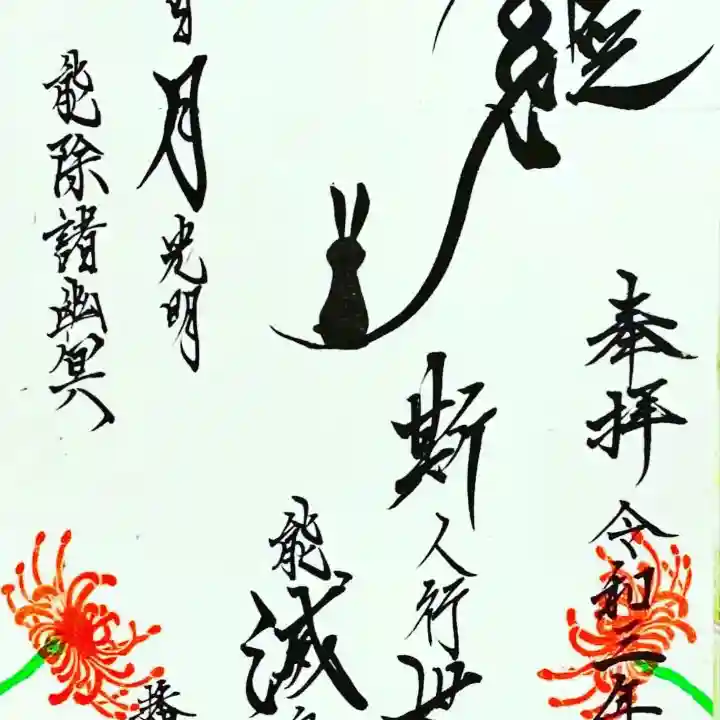 奉拝 令和三年
経
斯人行世
能滅
月光明
能除諸幽冥